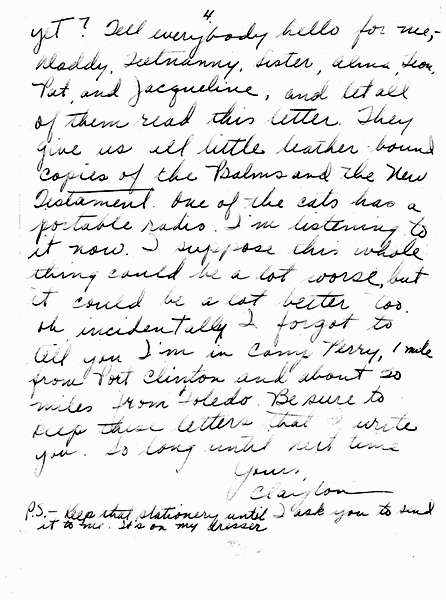 4
yet? Tell everybody hello for me,-
Daddy, Teetnanny, Sister, Alma, Leon,
Pat, and Jacqueline, and let all
of them read this letter. They
give us all little leather bound
copies of the Psalms and the New
Testament. One of the cats has a
portable radio. I'm listening to
it now. I suppose this whole
thing could be a lot worse, but
it could be a lot better too.
Oh incidentally I forgot to
tell you I'm in Camp Perry, 1 mile
from Port Clinton and about 50
miles from Toledo. Be sure to
keep these letters that I write
you. So long until next time
Yours,
P.S.- Keep that stationery until I ask you to send
it to me. It's on my dresser